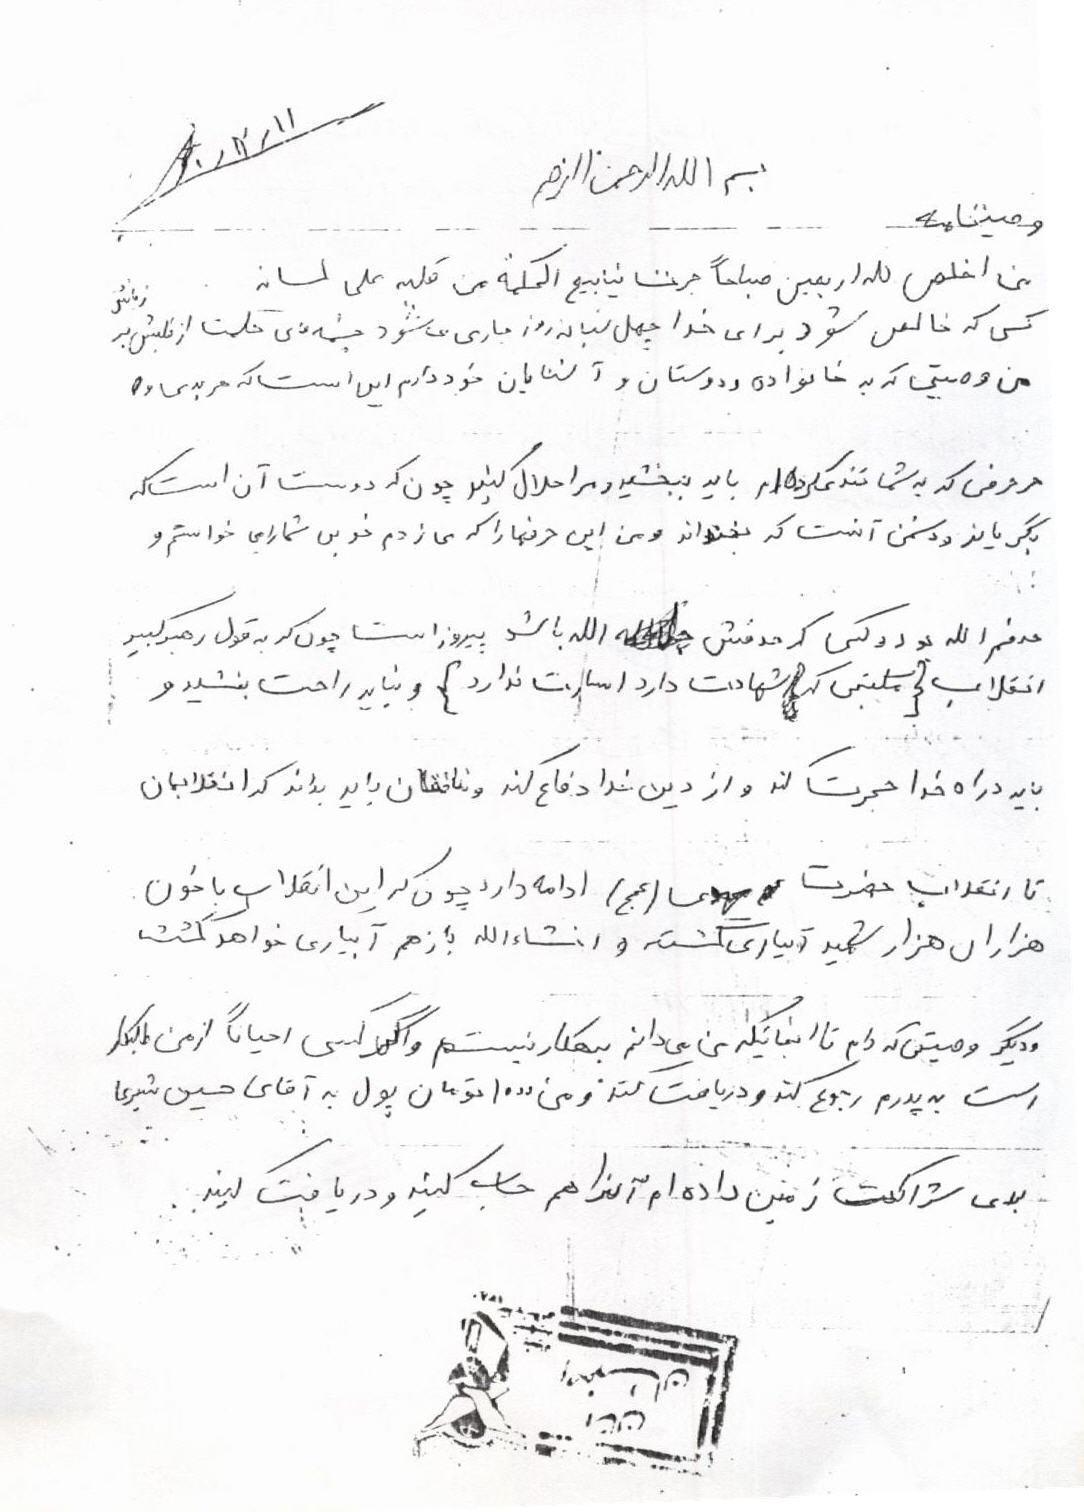 ۶۰/۱۲/۱۱
بسم الله الرحمن الرحیم
وصیتنامه
من اخلص لله اربعین صباحاً جرت ینابیع الحکمة من قلبه علی لسانه
کسی که خالص شود برای خدا چهل شبانه روز جاری می شود چشمه های حکمت از قلبش بر زبانش
من وصیتی که به خانواده و دوستان و آشنایان خود دارم این است که هر بدی و
هر حرفی که به شما تند کرده ام باید ببخشید و مرا حلال کنید چون که دوست آن است که
بگریاند و دشمن آنست که بخنداند و من این حرفها را که می زدم خوبی شما را می خواستم و
هدفم الله بود و کسی که هدفش الله باشد پیروز است چون که به قول رهبر کبیر
انقلاب {ملتی که شهادت دارد اسارت ندارد} و نباید راحت بنشیند و
باید در راه خدا هجرت کند و از دین خدا دفاع کند و منافقان باید بدانند که انقلابمان
تا انقلاب حضرت مهدی (عج) ادامه دارد چون که این انقلاب با خون
هزاران هزار شهید آبیاری گشته و انشاءالله باز هم آبیاری خواهد گشت
و دیگر وصیتی که دارم تا اینجائیکه من می دانم بدهکار نیستم و اگر کسی احیاناً از من طلبکار
است به پدرم رجوع کند و دریافت کند و من ۱۰۰۰ تومان پول به آقای حسین
برای شراکت زمین داده ام آنرا هم حساب کنید و دریافت کنید